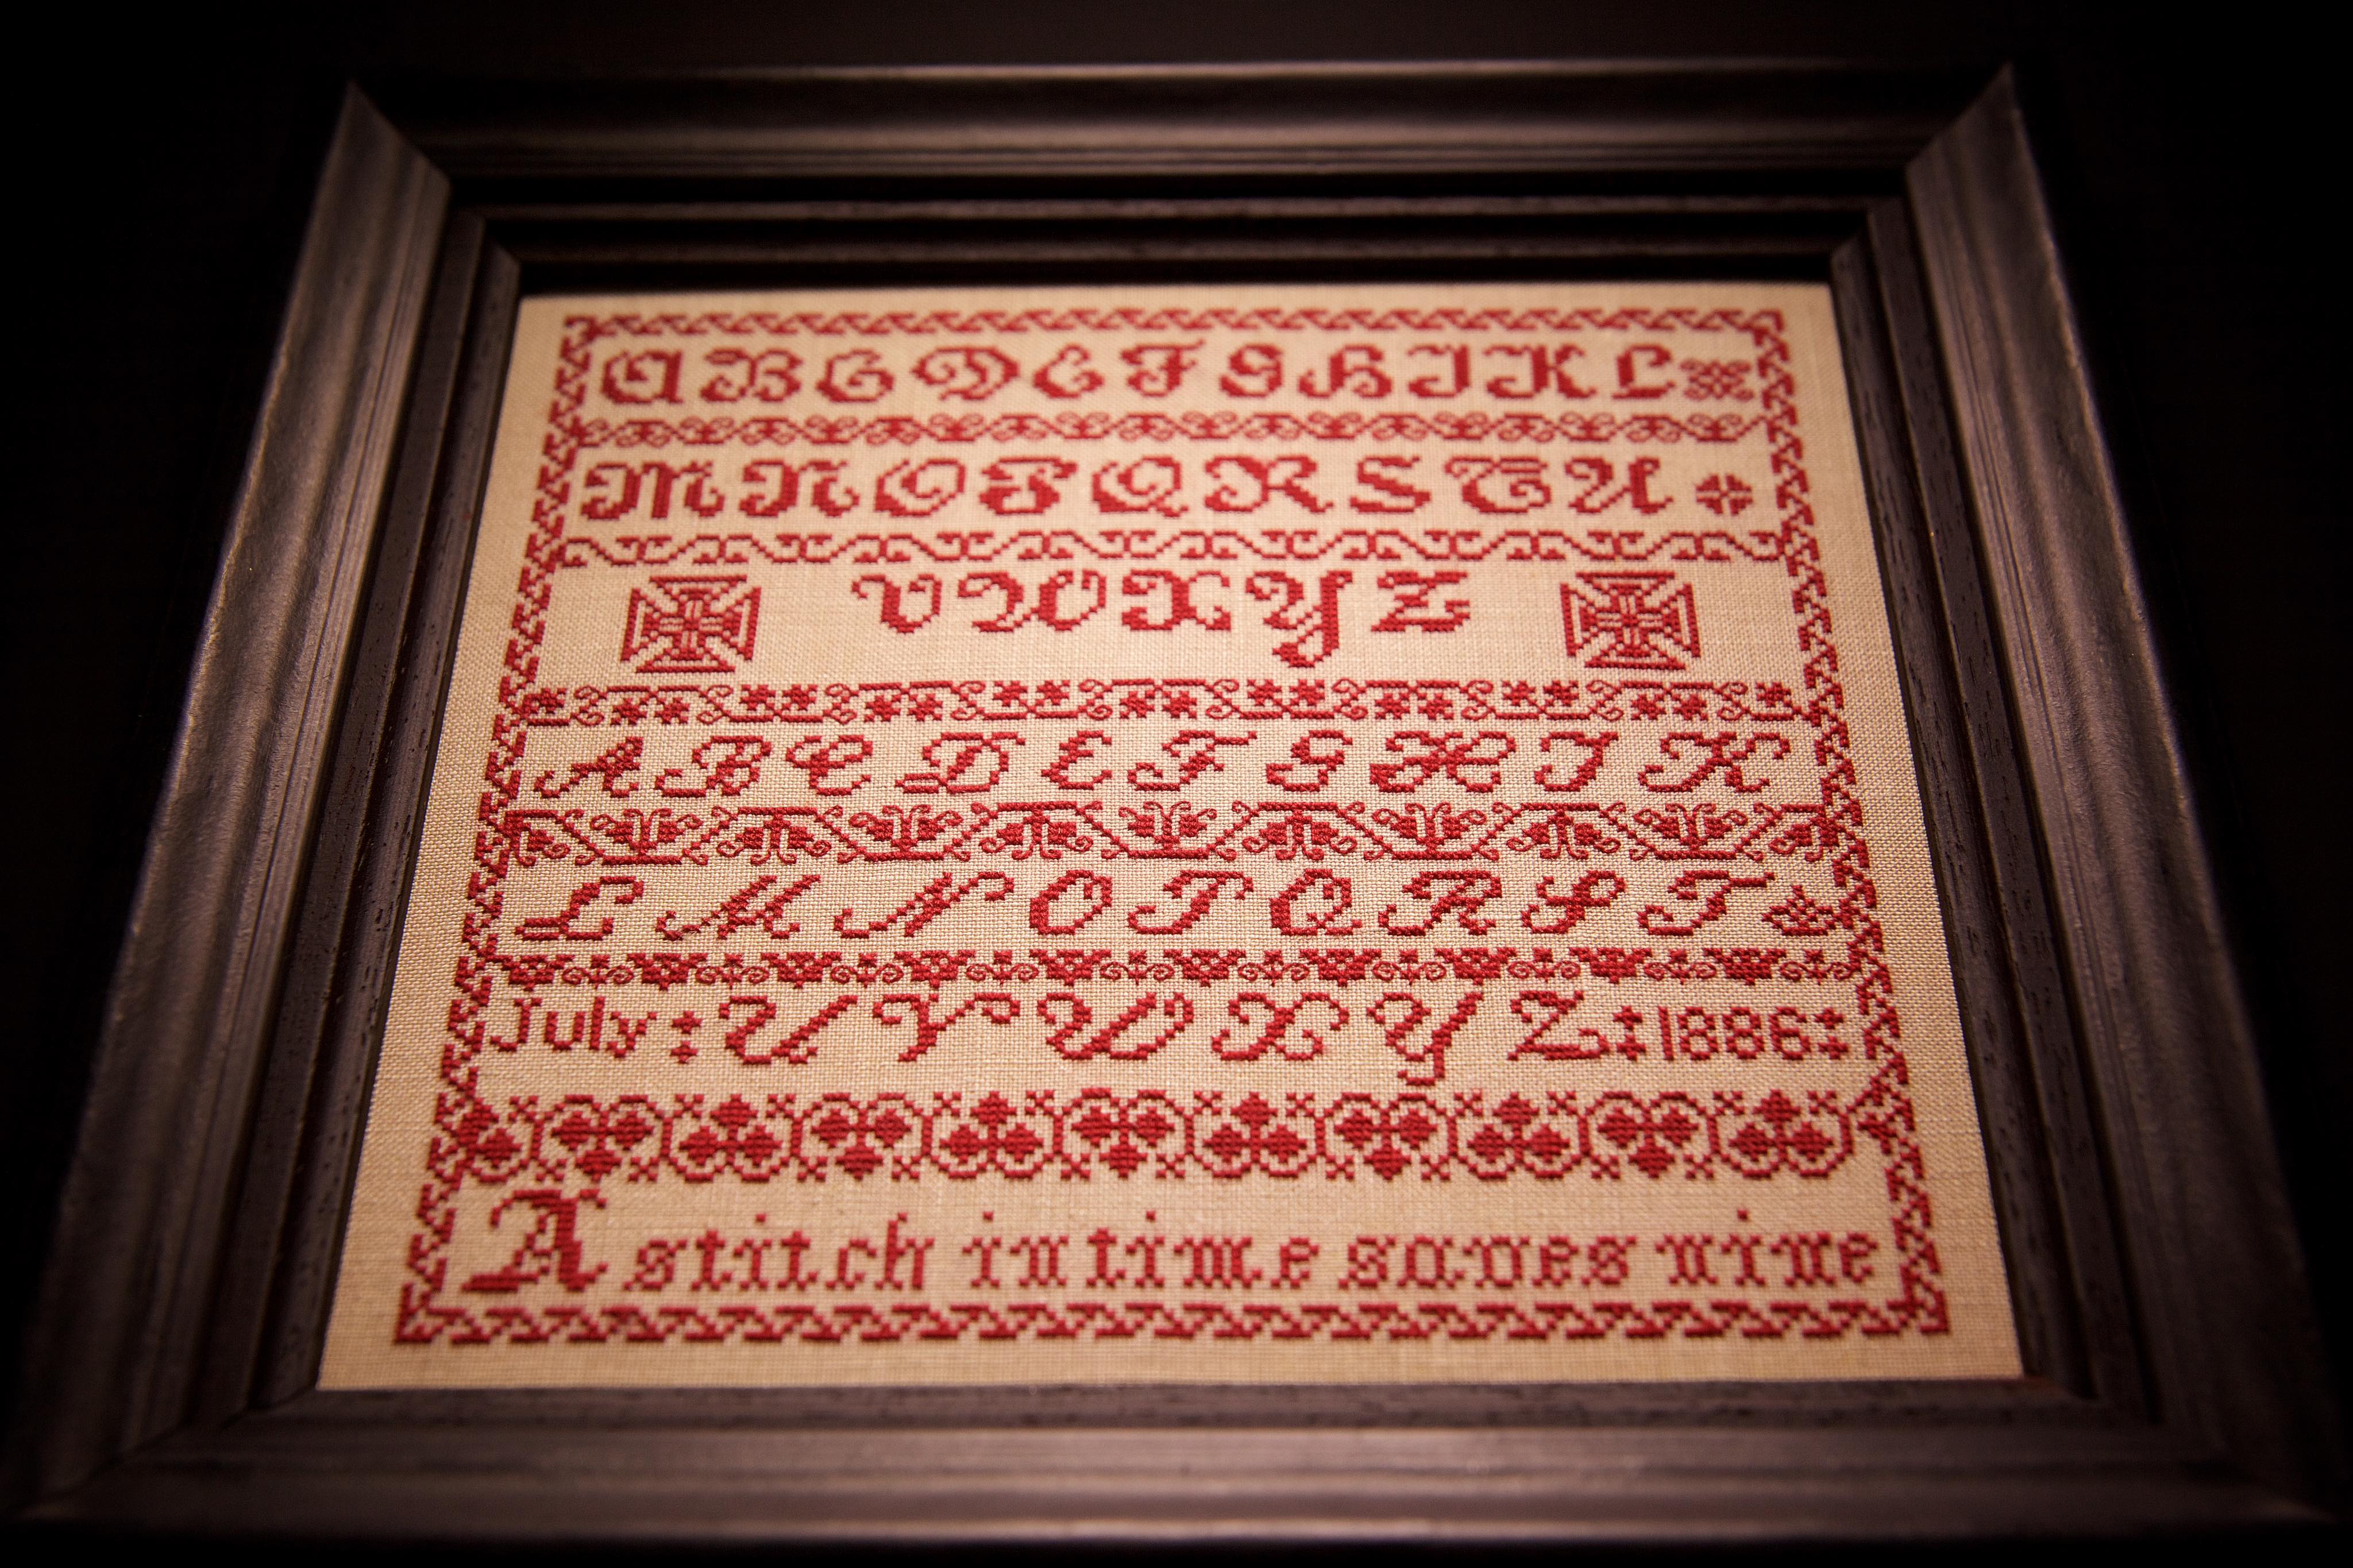 A B C D E F G H I K L
M N O P Q R S T U
V W X Y Z
A B C D E F G H I K
L M N O P Q R S T
July : U V W X Y Z : 1886 :
A stitch in time saves nine